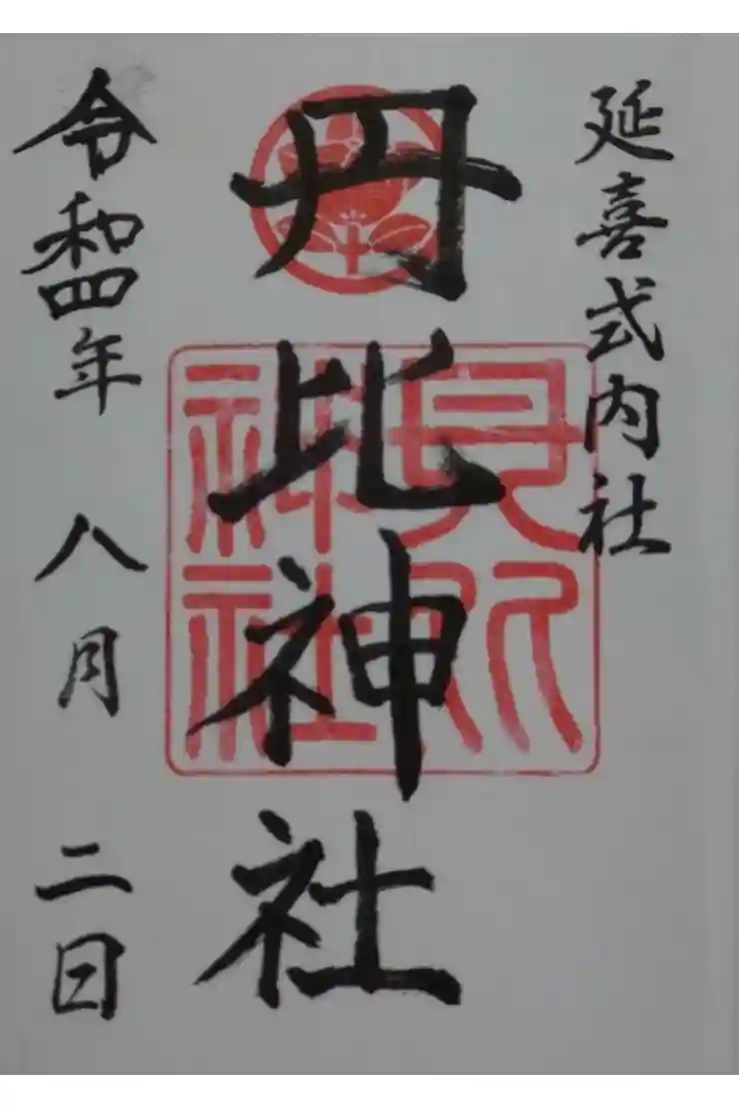 延喜式内社
丹比神社
令和四年 八月 二日
丹比神社